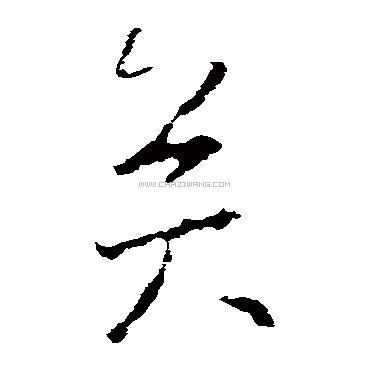 矣
WWW.CHAZIWANG.COM